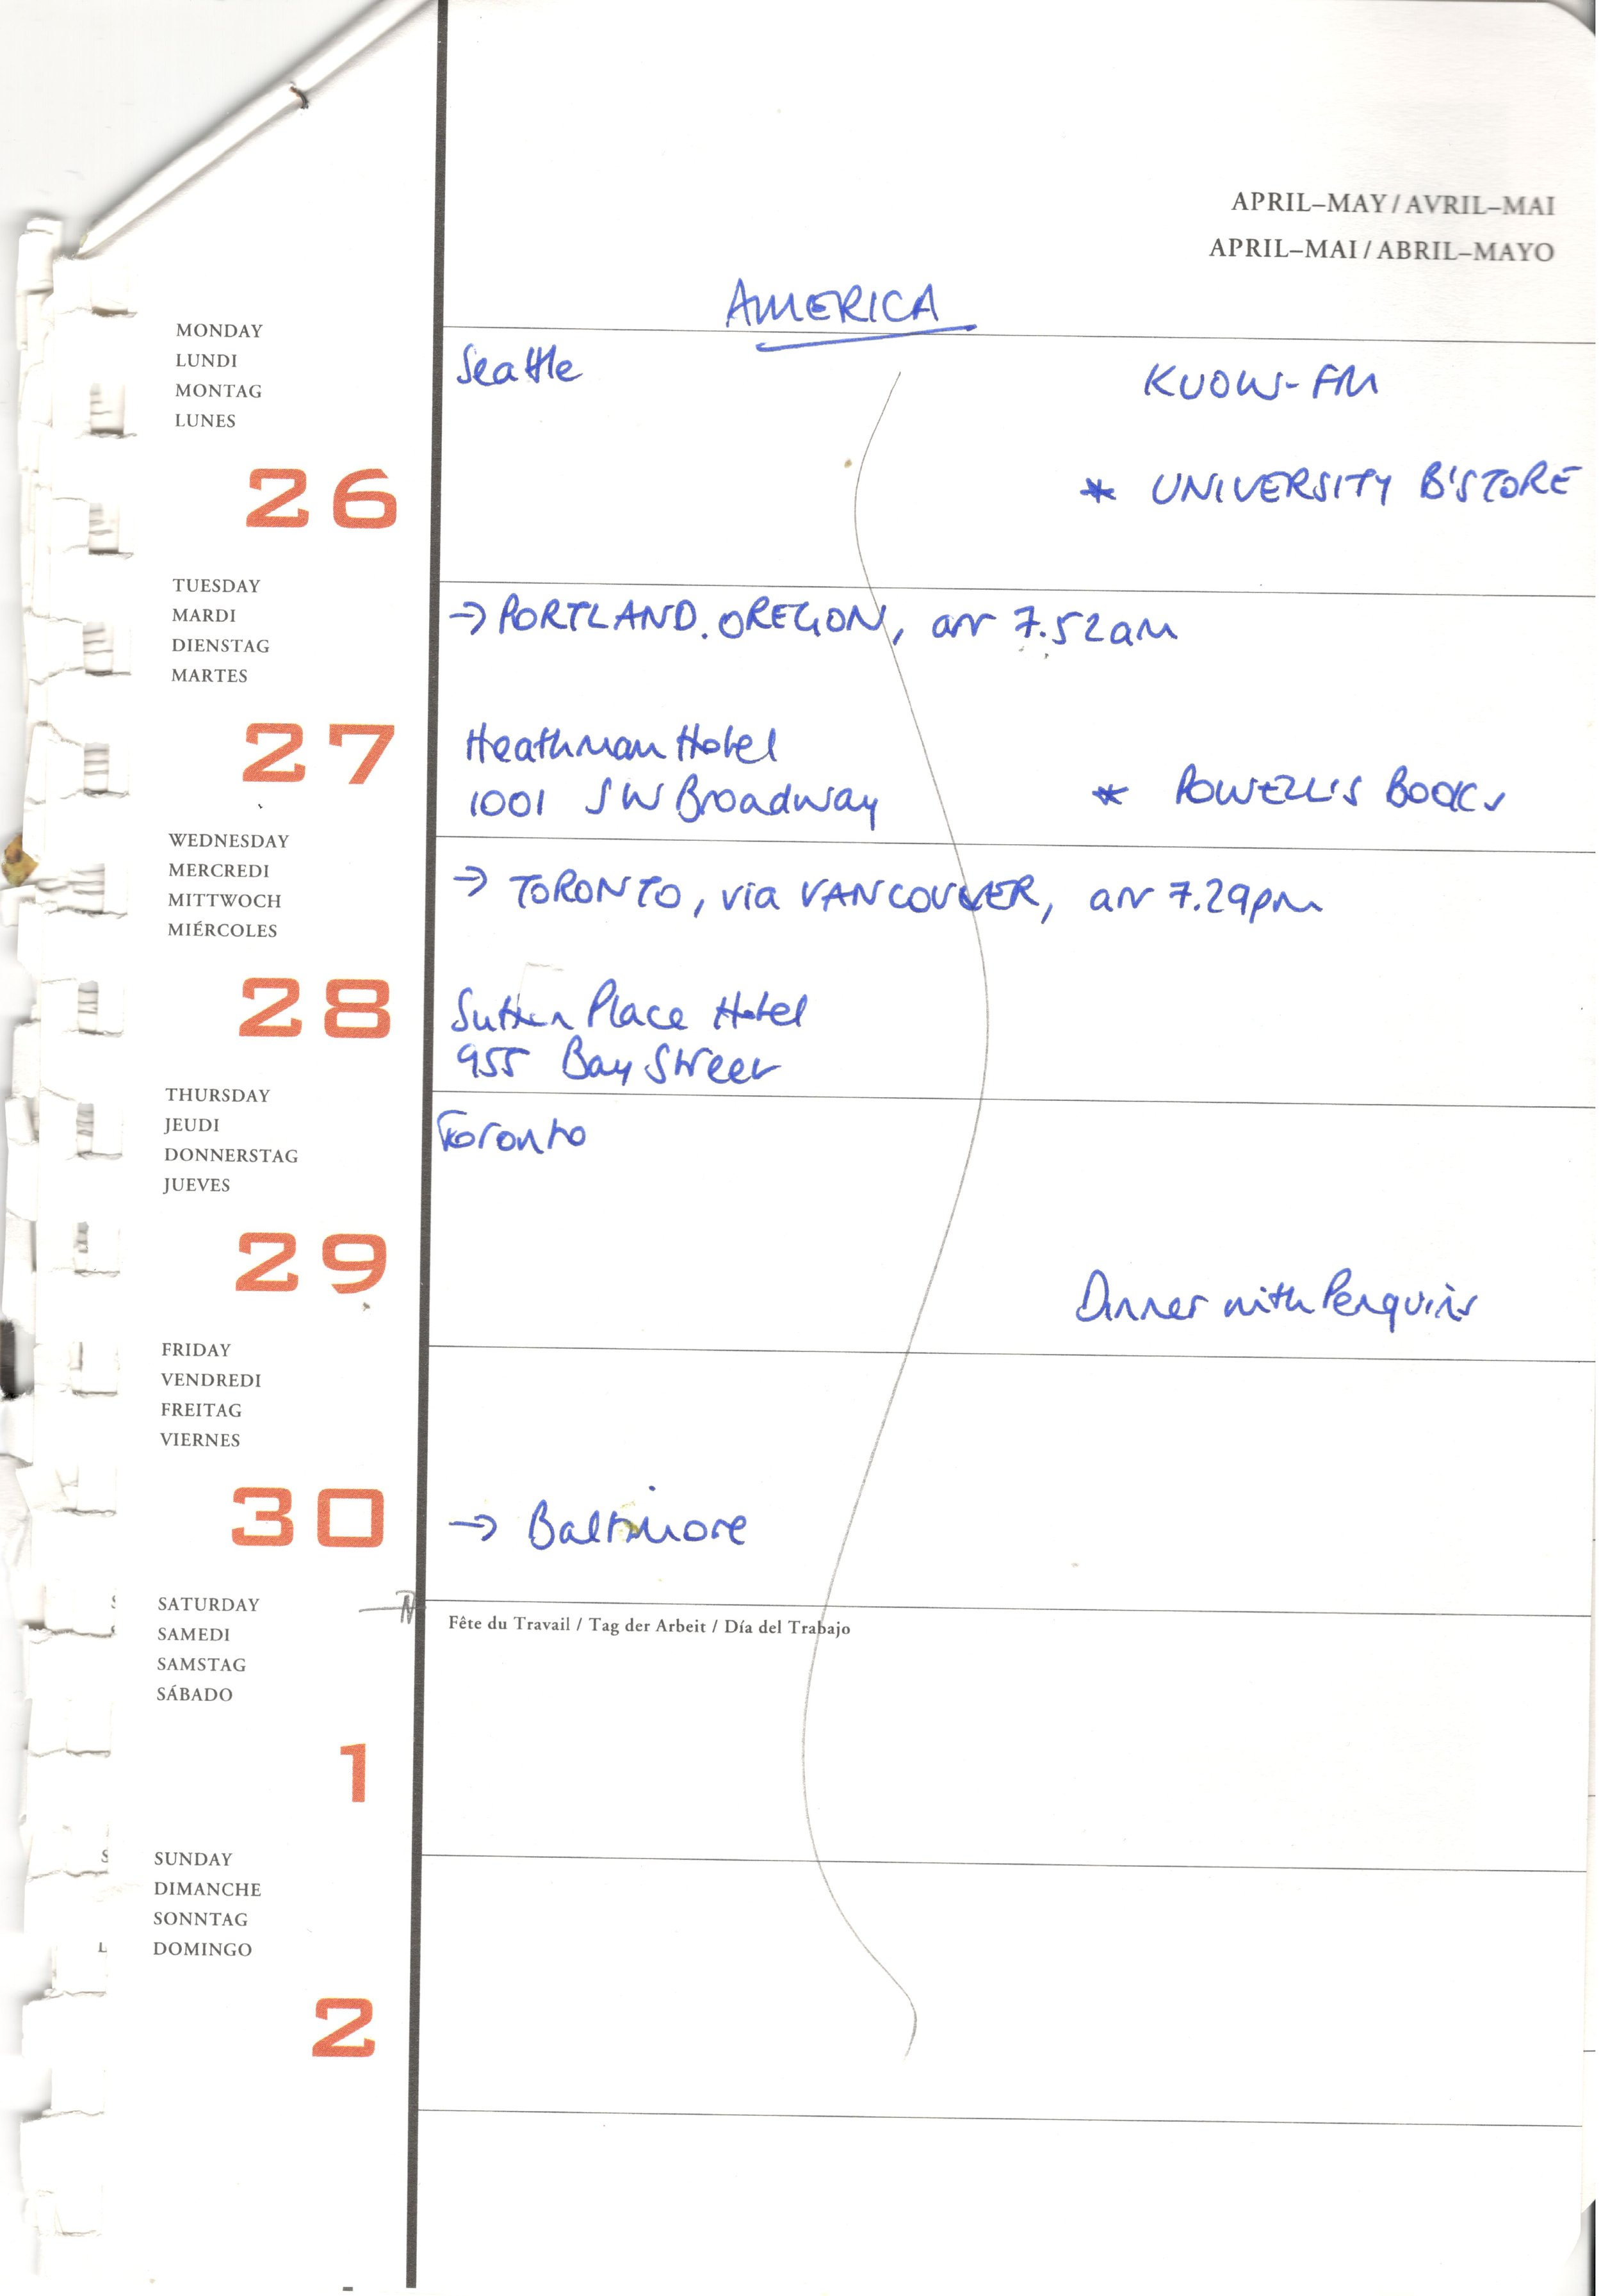 APRIL–MAY / AVRIL–MAI
APRIL–MAI / ABRIL–MAYO
AMERICA
MONDAY
LUNDI
MONTAG
LUNES
26
Seattle
KUOW-FM
* UNIVERSITY B'STORE
TUESDAY
MARDI
DIENSTAG
MARTES
27
→ PORTLAND. OREGON, arr 7.52am
Heathman Hotel
1001 SW Broadway
* POWELL'S BOOKS
WEDNESDAY
MERCREDI
MITTWOCH
MIÉRCOLES
28
→ TORONTO, via VANCOUVER, arr 7.29pm
Sutton Place Hotel
955 Bay Street
THURSDAY
JEUDI
DONNERSTAG
JUEVES
29
Toronto
Dinner with Penguins
FRIDAY
VENDREDI
FREITAG
VIERNES
30
→ Baltimore
SATURDAY
SAMEDI
SAMSTAG
SÁBADO
1
Fête du Travail / Tag der Arbeit / Día del Trabajo
SUNDAY
DIMANCHE
SONNTAG
DOMINGO
2